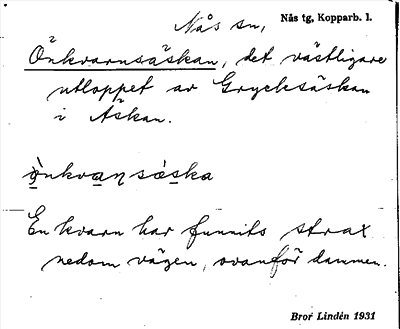 Nås sn, Nås tg, Kopparb. l.
Önkvarnsäskan, det västligare
utloppet av Grycksäskan
i Äskan.
ò̱nkva̱ŋ sæ̱ska
En kvarn har funnits strax
nedom vägen, ovanför dammen.
Bror Lindén 1931